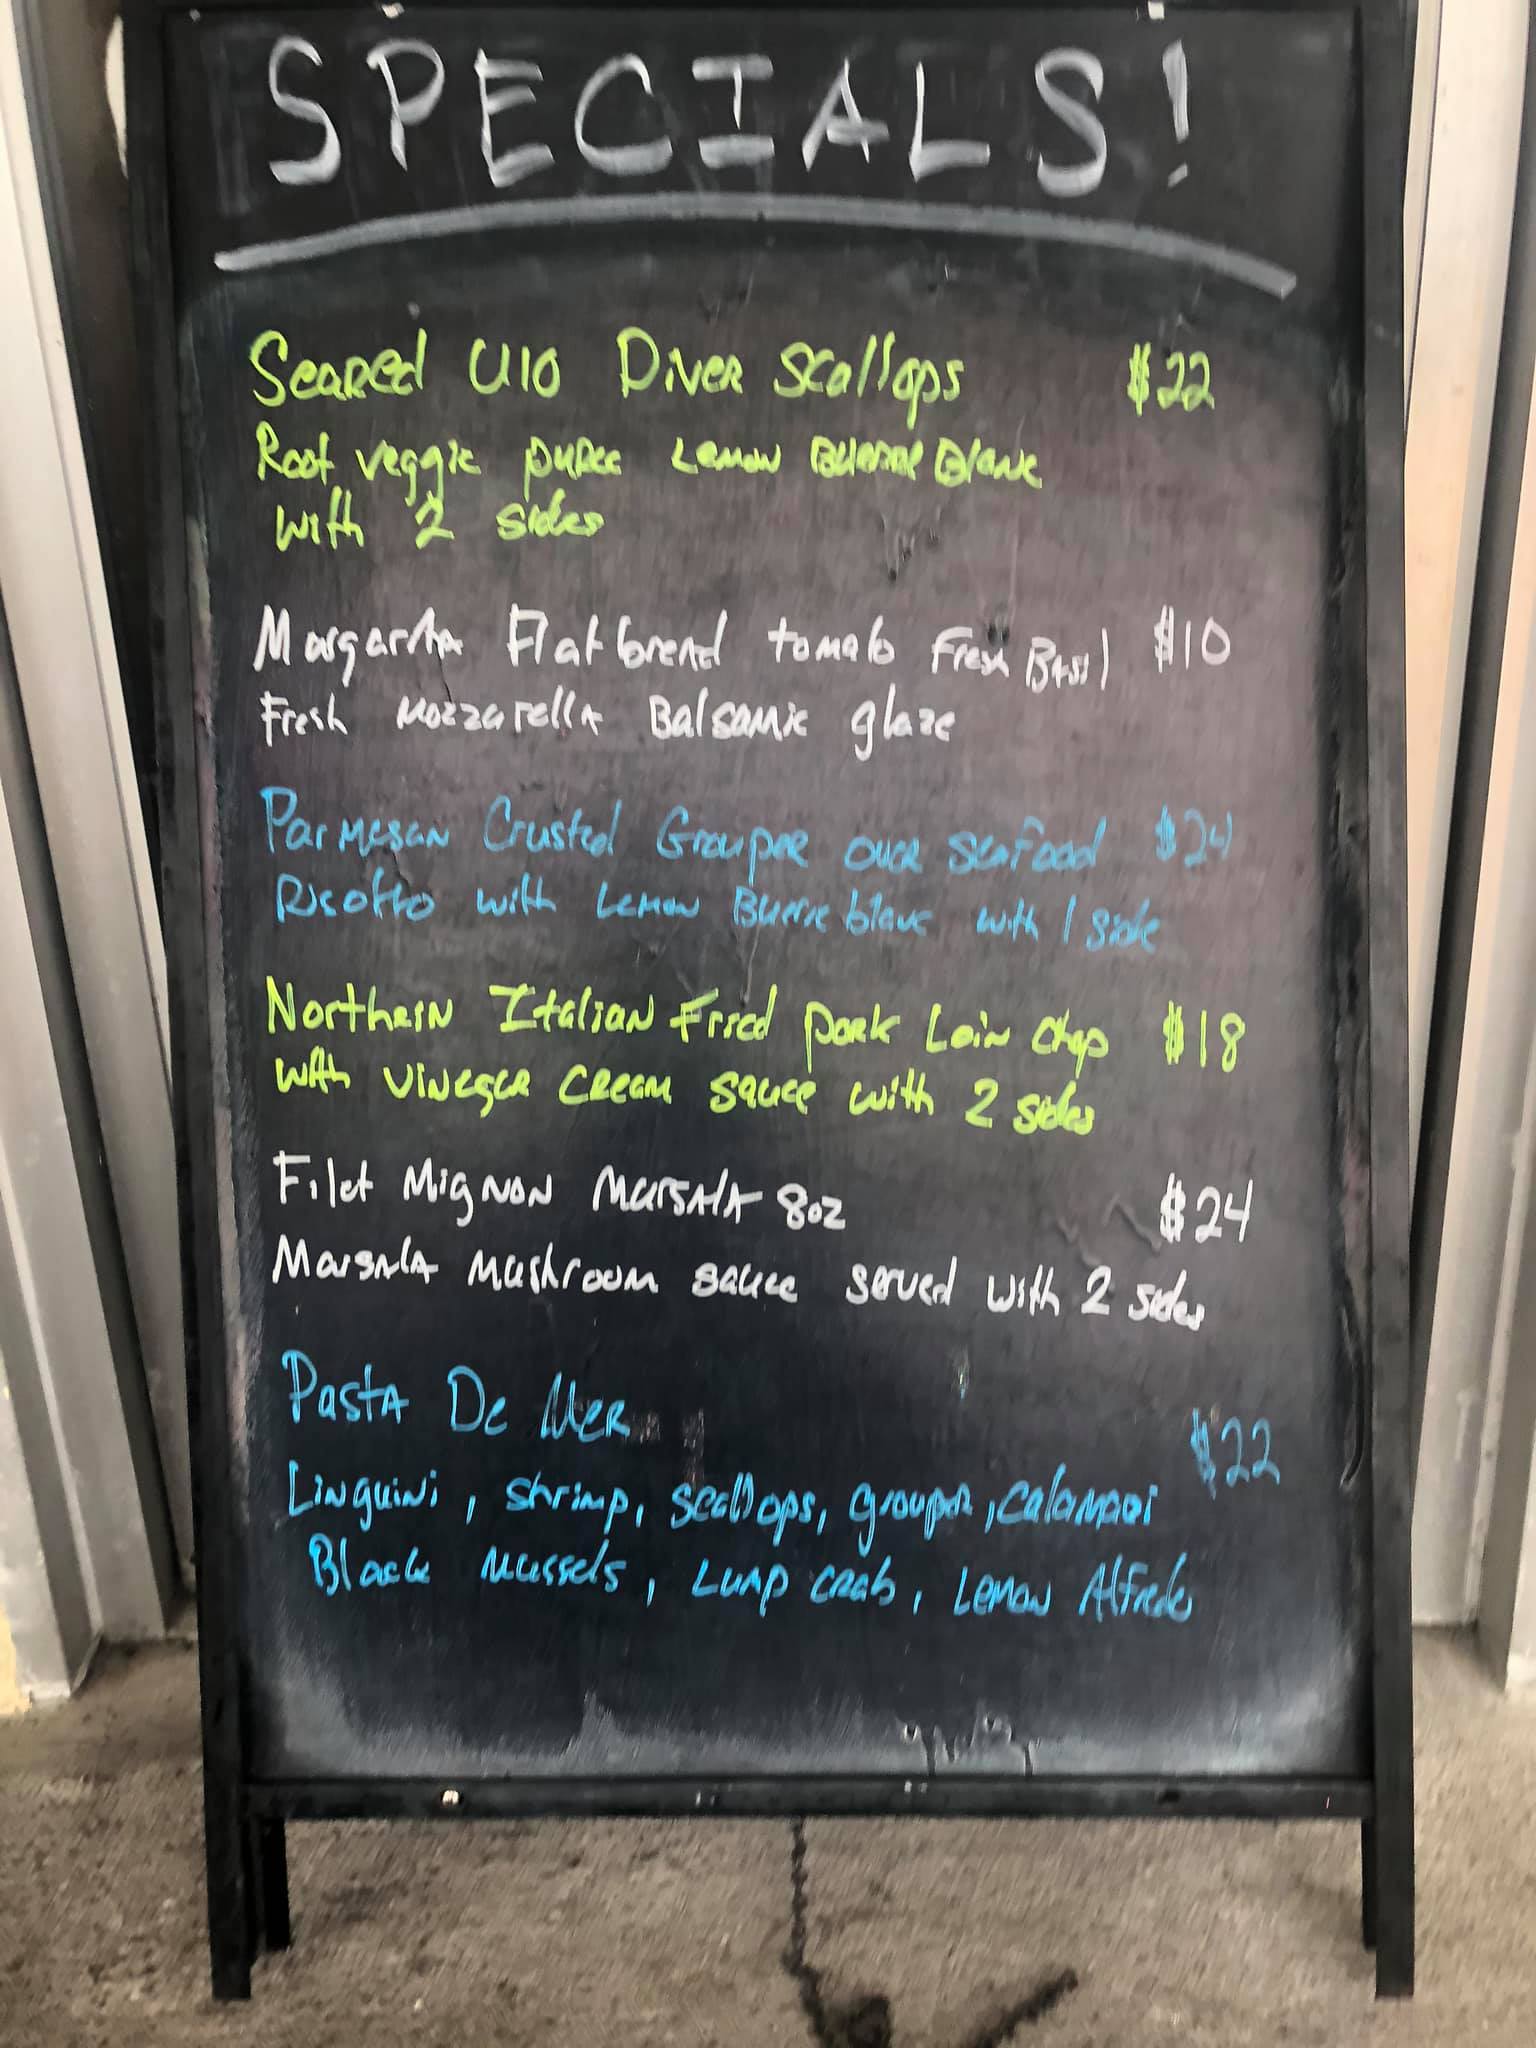 SPECIALS!
Seared U10 Diver Scallops $22
Root veggie puree Lemon Buerre Blanc
with 2 sides
Margarita Flatbread tomato Fresh Basil $10
Fresh Mozzarella Balsamic glaze
Parmesan Crusted Grouper over seafood $24
Risotto with Lemon Burre blanc with 1 side
Northern Italian Fried pork Loin chop $18
with vinegar cream sauce with 2 sides
Filet Mignon Marsala 8oz $24
Marsala mushroom sauce served with 2 sides
Pasta De Mer $22
Linguini, shrimp, scallops, grouper, calamari
Black mussels, Lump crab, Lemon Alfredo